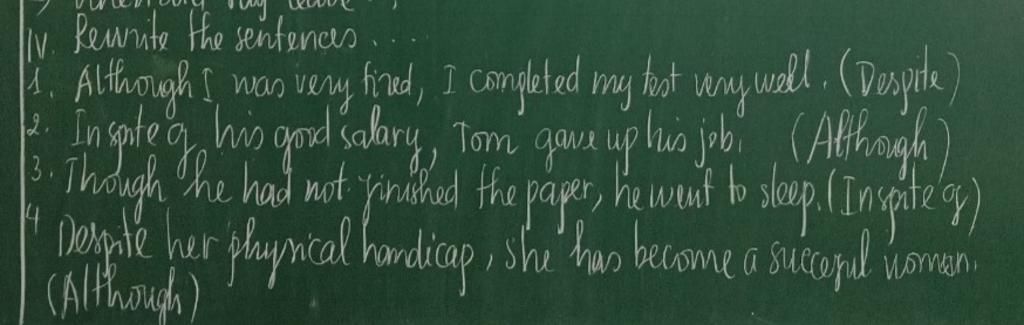 IV. Rewrite the sentences . . . .
1. Although I was very tired, I completed my test very well. (Despite)
2. In spite of his good salary, Tom gave up his job. (Although)
3. Though he had not finished the paper, he went to sleep. (In spite of)
4 Despite her physical handicap, she has become a succesful woman.
(Although)